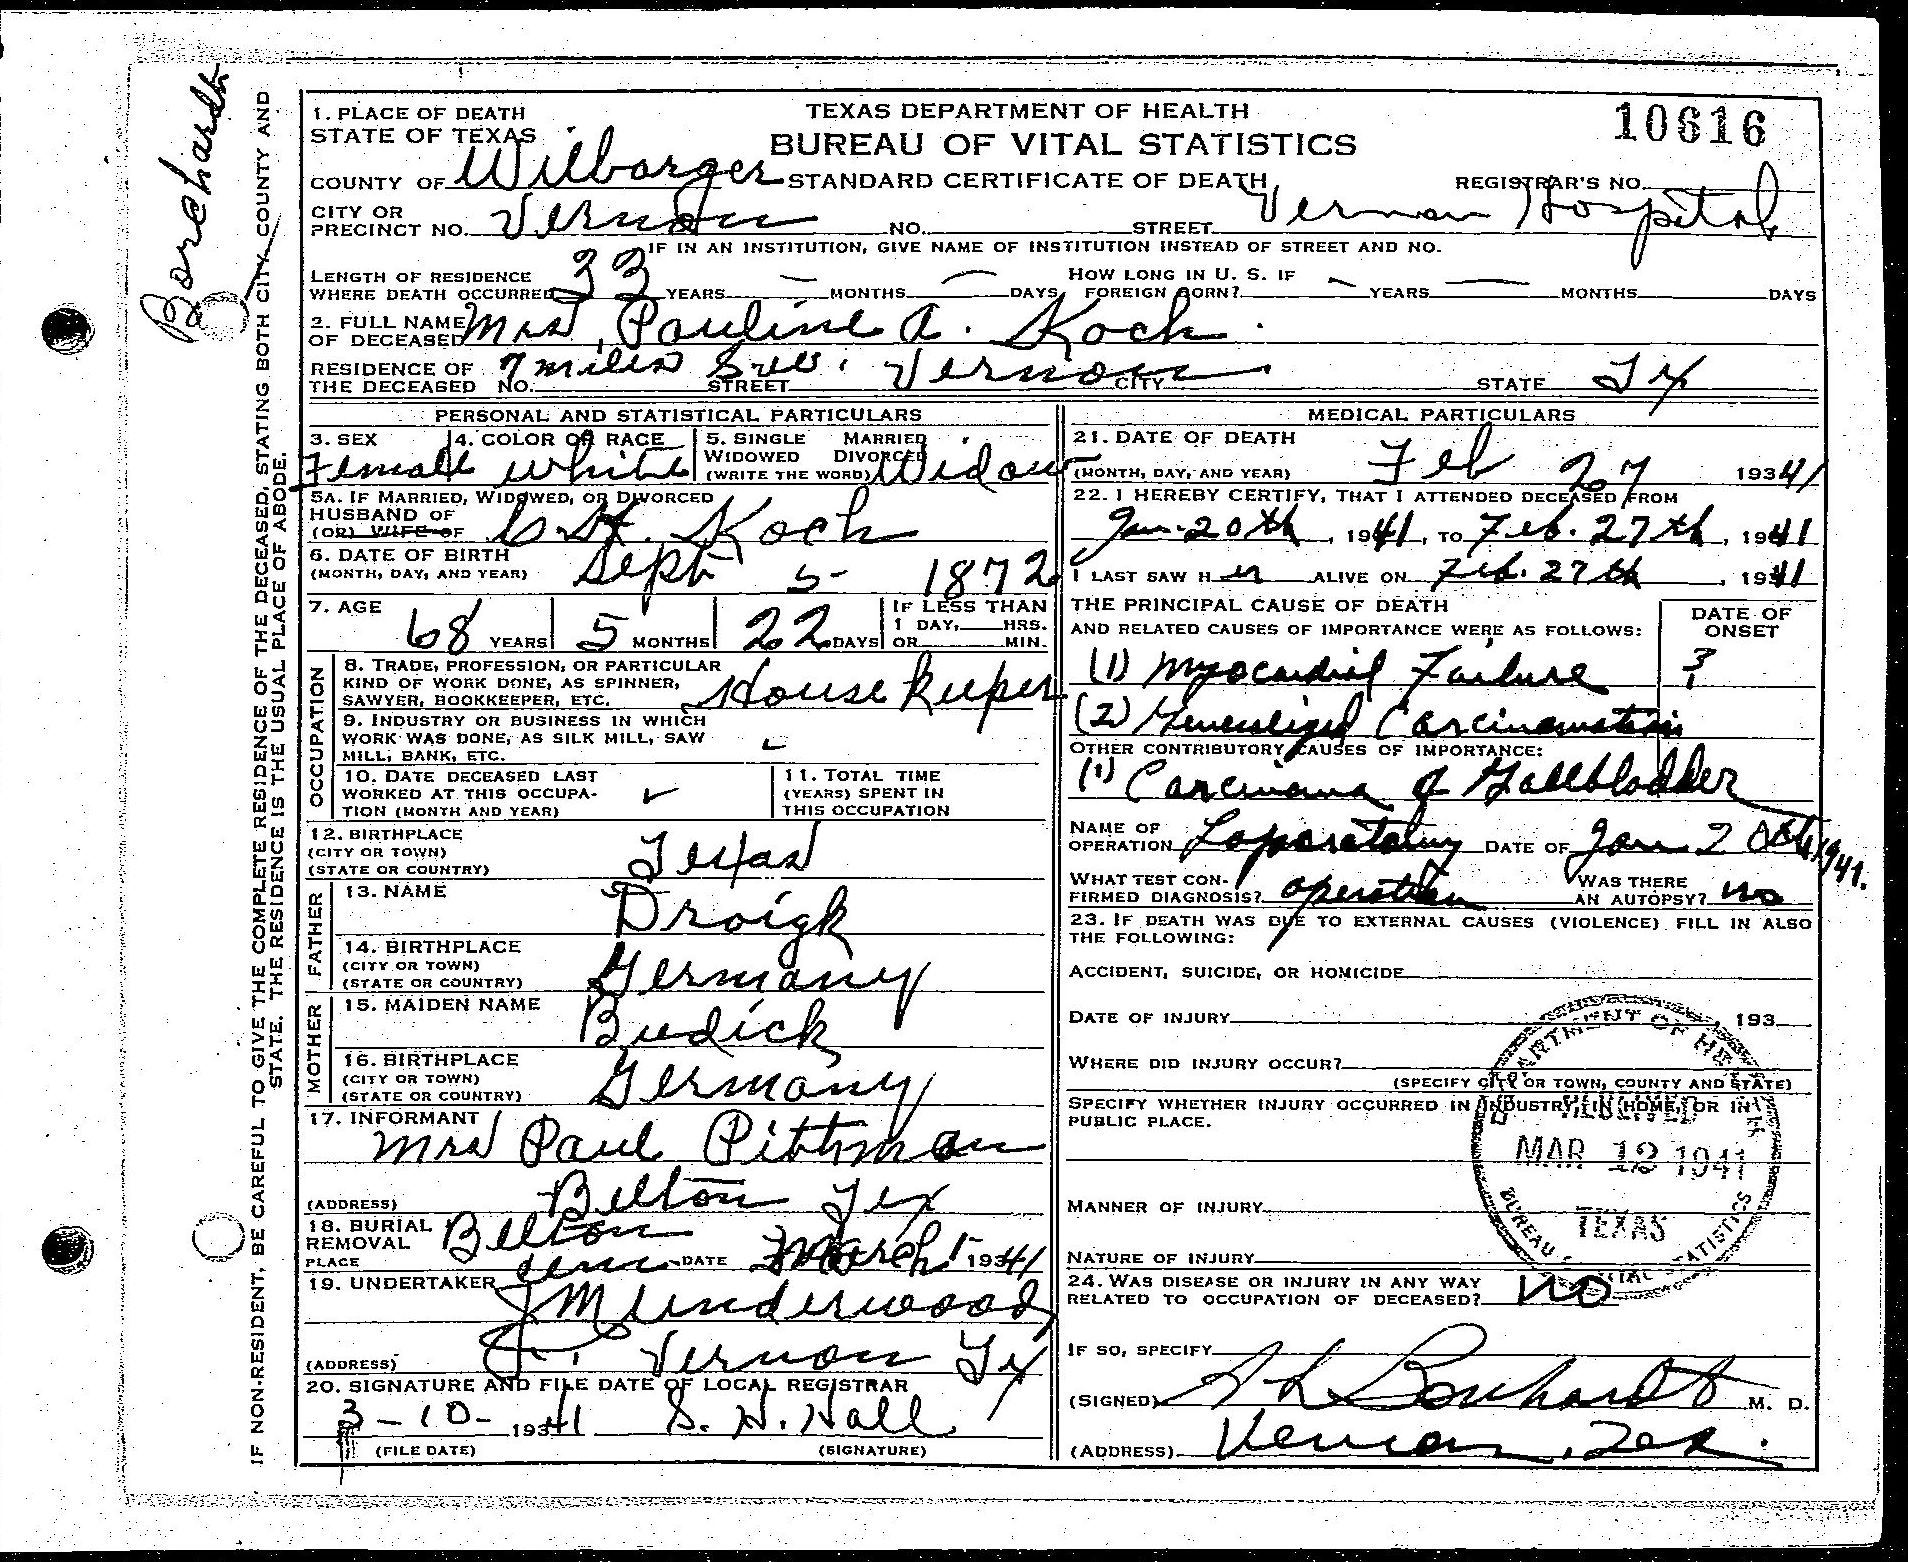 Borchardt
IF NON-RESIDENT, BE CAREFUL TO GIVE THE COMPLETE RESIDENCE OF THE DECEASED, STATING BOTH CITY, COUNTY AND
STATE. THE RESIDENCE IS THE USUAL PLACE OF ABODE.
TEXAS DEPARTMENT OF HEALTH
BUREAU OF VITAL STATISTICS
STANDARD CERTIFICATE OF DEATH
10616
REGISTRAR'S NO.
1. PLACE OF DEATH
STATE OF TEXAS
COUNTY OF Wilbarger
CITY OR
PRECINCT NO. Vernon NO. STREET Vernon Hospital
IF IN AN INSTITUTION, GIVE NAME OF INSTITUTION INSTEAD OF STREET AND NO.
LENGTH OF RESIDENCE
WHERE DEATH OCCURRED 33 YEARS - MONTHS - DAYS
HOW LONG IN U. S. IF
FOREIGN BORN? - YEARS - MONTHS DAYS
2. FULL NAME
OF DECEASED Mrs. Pauline A. Koch
RESIDENCE OF
THE DECEASED NO. 7 miles S.W. STREET Vernon CITY STATE Tx
PERSONAL AND STATISTICAL PARTICULARS
3. SEX Female
4. COLOR OR RACE White
5. SINGLE MARRIED
WIDOWED DIVORCED
(WRITE THE WORD) Widow
5A. IF MARRIED, WIDOWED, OR DIVORCED
HUSBAND OF
(OR) WIFE OF Koch
6. DATE OF BIRTH
(MONTH, DAY, AND YEAR) Sept 5- 1872
7. AGE 68 YEARS 5 MONTHS 22 DAYS
IF LESS THAN
1 DAY, HRS.
OR MIN.
OCCUPATION
8. TRADE, PROFESSION, OR PARTICULAR
KIND OF WORK DONE, AS SPINNER,
SAWYER, BOOKKEEPER, ETC. House keeper
9. INDUSTRY OR BUSINESS IN WHICH
WORK WAS DONE, AS SILK MILL, SAW
MILL, BANK, ETC.
10. DATE DECEASED LAST
WORKED AT THIS OCCUPA-
TION (MONTH AND YEAR)
11. TOTAL TIME
(YEARS) SPENT IN
THIS OCCUPATION
12. BIRTHPLACE
(CITY OR TOWN)
(STATE OR COUNTRY) Texas
FATHER
13. NAME Droigk
14. BIRTHPLACE
(CITY OR TOWN)
(STATE OR COUNTRY) Germany
MOTHER
15. MAIDEN NAME Budick
16. BIRTHPLACE
(CITY OR TOWN)
(STATE OR COUNTRY) Germany
17. INFORMANT
Mrs Paul Pittman
(ADDRESS) Belton Tex
18. BURIAL
REMOVAL
PLACE Belton Tex DATE March 1 1941
19. UNDERTAKER J M Underwood
(ADDRESS) Vernon Tx
20. SIGNATURE AND FILE DATE OF LOCAL REGISTRAR
3-10- 1941 S. H. Hall
(FILE DATE) (SIGNATURE)
MEDICAL PARTICULARS
21. DATE OF DEATH
(MONTH, DAY, AND YEAR) Feb 27 19341
22. I HEREBY CERTIFY, THAT I ATTENDED DECEASED FROM
Jan. 20th, 1941, TO Feb. 27th, 1941
I LAST SAW HER ALIVE ON Feb. 27th, 1941
THE PRINCIPAL CAUSE OF DEATH
AND RELATED CAUSES OF IMPORTANCE WERE AS FOLLOWS:
DATE OF
ONSET
(1) Myocardial Failure ?
(2) Generalized Carcinomatosis
OTHER CONTRIBUTORY CAUSES OF IMPORTANCE:
(1) Carcinoma of Gallbladder
NAME OF
OPERATION Laporatomy DATE OF Jan 20th, 1941.
WHAT TEST CON-
FIRMED DIAGNOSIS? operation
WAS THERE
AN AUTOPSY? no
23. IF DEATH WAS DUE TO EXTERNAL CAUSES (VIOLENCE) FILL IN ALSO
THE FOLLOWING:
ACCIDENT, SUICIDE, OR HOMICIDE
DATE OF INJURY 193
WHERE DID INJURY OCCUR?
(SPECIFY CITY OR TOWN, COUNTY AND STATE)
SPECIFY WHETHER INJURY OCCURRED IN INDUSTRY, IN HOME, OR IN
PUBLIC PLACE.
MANNER OF INJURY
NATURE OF INJURY
DEPARTMENT OF HEALTH
RECEIVED
MAR 12 1941
TEXAS
BUREAU OF VITAL STATISTICS
24. WAS DISEASE OR INJURY IN ANY WAY
RELATED TO OCCUPATION OF DECEASED? no
IF SO, SPECIFY
(SIGNED) Borchardt M. D.
(ADDRESS) Vernon, Tex.